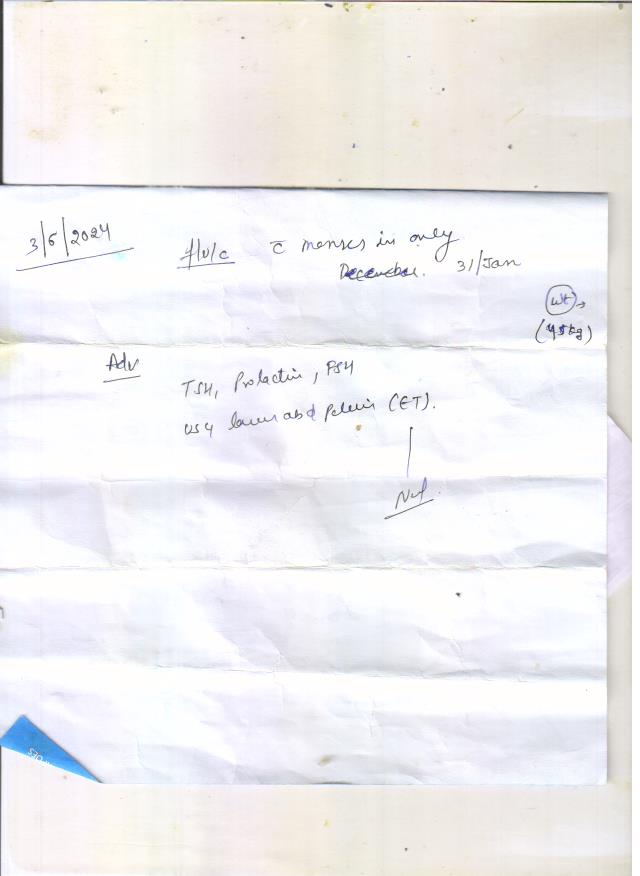 3/5/2024
f/u/c c̄ menses in only
December. 31/Jan
Wt →
(45kg)
Adv
TSH, Prolactin, FSH
USG lower abd Pelvis (ET).